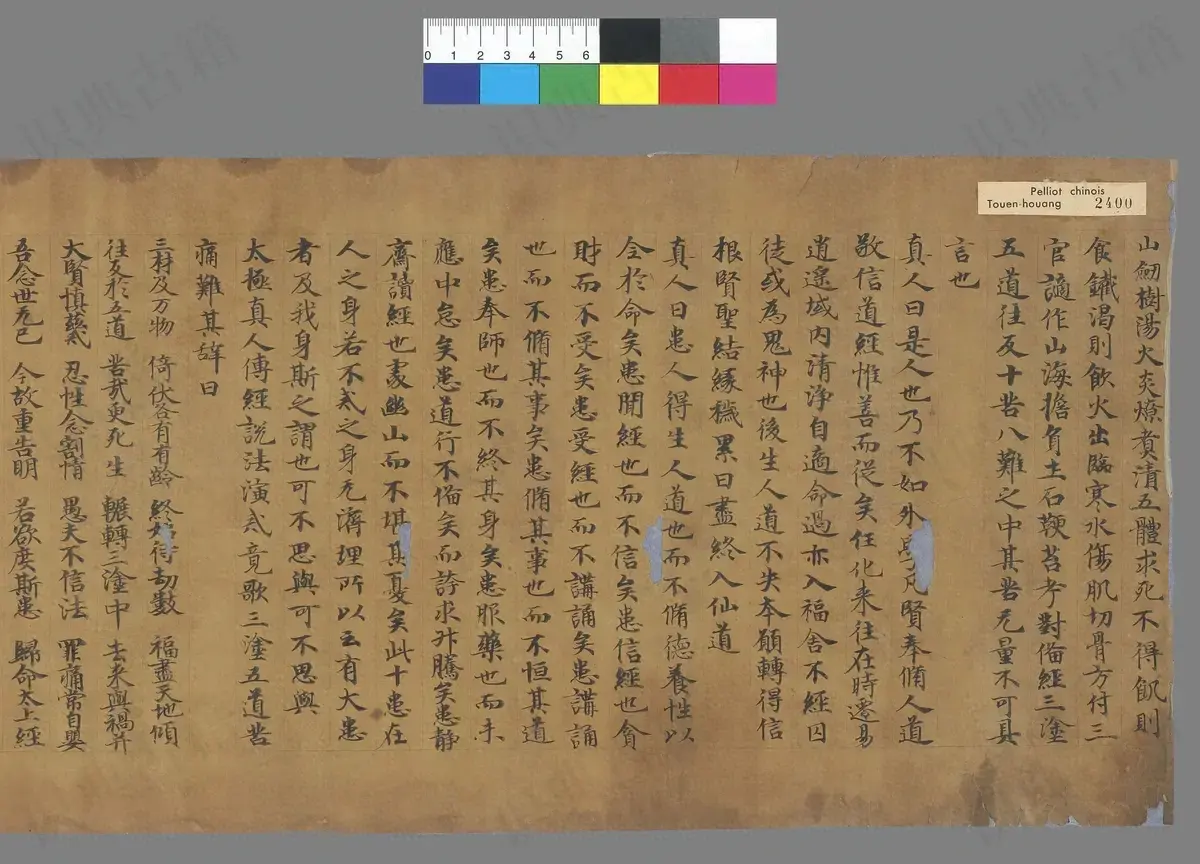 Pelliot chinois
Touen-houang 2400
0 1 2 3 4 5 6
山劒樹湯火炎燎煑清五體求死不得飢則
食鐵渴則飲火出臨寒水傷肌切骨方付三
官謫作山海擔負土石鞭苔考對俻經三塗
五道往反十苦八難之中其苦无量不可具
言也
真人曰是人也乃不如外學凡賢奉脩人道
敬信道經惟善而從矣任化来往在時遷易
逍遥域内清浄自適命過亦入福舍不經囚
徒或為鬼神也後生人道不失本願轉得信
根賢聖結縁穢累日盡終入仙道
真人曰患人得生人道也而不脩德養性以
全於命矣患聞經也而不信矣患信經也貪
財而不受矣患受經也而不講誦矣患講誦
也而不脩其事矣患脩其事也而不恒其道
矣患奉師也而不終其身矣患服藥也而未
應中怠矣患道行不愊矣而誇求升騰矣患静
齋讀經也處幽山而不堪其憂矣此十患在
人之身若不戒之身无濟理所以云有大患
者及我身斯之謂也可不思與可不思與
太極真人傳經説法演戒竟歌三塗五道苦
痛難其辞曰
三材及万物 倚伏各有有齡 終始待劫數 福盡天地傾
往反於五道 苦哉更死生 輾轉三塗中 去来與禍并
大賢慎兹戒 忍性念割情 愚夫不信法 罪痛常自嬰
吾念世无已 今故重告明 若欲度斯患 歸命太上經
识典古籍
识典古籍
识典古籍